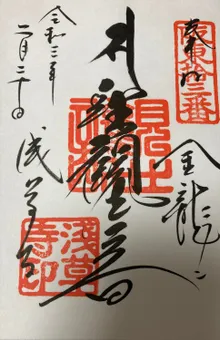 奉拝
坂東十三番
金龍山
聖観世音
浅草寺
淺草寺印
令和三年
二月二十日